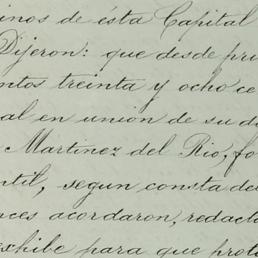 inos de ésta Capital
Dijeron: que desde pri
ntos treinta y ocho ce
al en union de su d
Martinez del Rio, fo
ntil, segun consta del
ces acordaron, redacta
exhibe para que proto